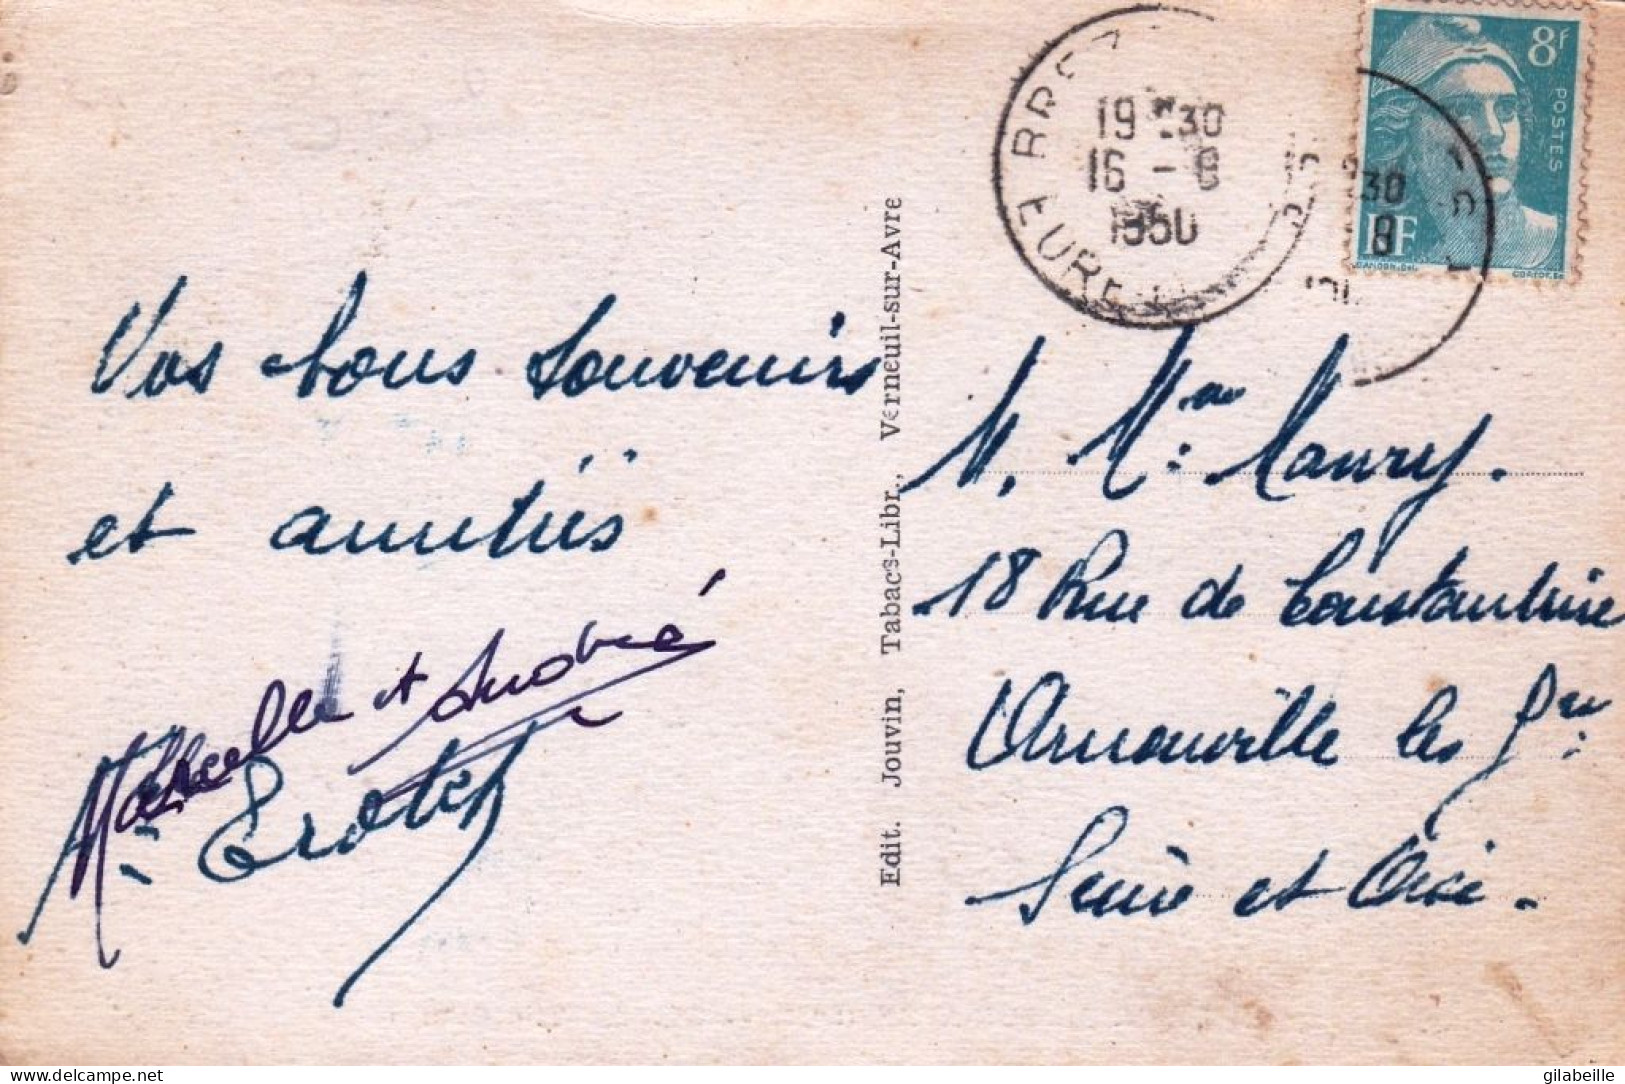 Vos bons souvenirs
et amitiés
Marcelle et André
Edit. Jouvin, Tabacs-Libr., Verneuil-sur-Avre
19 30
16 - 8
1950
EURE
30
8
8F
POSTES
RF
M. Mme Maury.
18 Rue de Constantine
Arnouville les
Seine et Oise.
delcampe.net
gilabeille